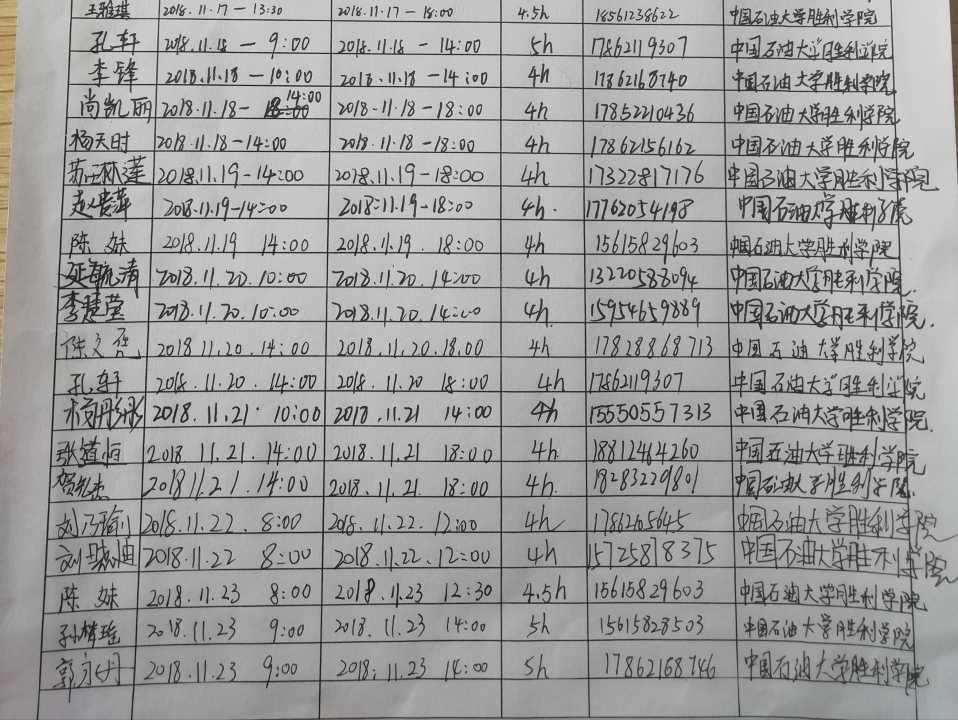 王雅琪 2018.11.17-13:30 2018.11.17-18:00 4.5h 18561238622 中国石油大学胜利学院
孔轩 2018.11.18-9:00 2018.11.18-14:00 5h 17862119307 中国石油大学胜利学院
李锋 2018.11.18-10:00 2018.11.18-14:00 4h 17862168740 中国石油大学胜利学院
尚凯丽 2018.11.18-14:00 2018.11.18-18:00 4h 17852210436 中国石油大学胜利学院
杨天时 2018.11.18-14:00 2018.11.18-18:00 4h 17862156162 中国石油大学胜利学院
2018.11.19-14:00 2018.11.19-18:00 4h 17322817176 中国石油大学胜利学院
赵贵萍 2018.11.19-14:00 2018.11.19-18:00 4h. 17762054198 中国石油大学胜利学院
陈妹 2018.11.19 14:00 2018.11.19.18:00 4h 15615829603 中国石油大学胜利学院
延毓清 2018.11.20.10:00 2018.11.20.14:00 4h 13220588094 中国石油大学胜利学院.
李慧莹 2018.11.20.10:00 2018.11.20.14:00 4h. 15954659889 中国石油大学胜利学院.
陈文 2018.11.20.14:00 2018.11.20.18.00 4h 17828868713 中国石油大学胜利学院
孔轩 2018.11.20.14:00 2018.11.20 18:00 4h 17862119307 中国石油大学胜利学院
杨彤彤 2018.11.21 10:00 2018.11.21 14:00 4h 15550557313 中国石油大学胜利学院.
张道恒 2018.11.21.14:00 2018.11.21 18:00 4h 18812464260 中国石油大学胜利学院
贺 2018 11.21.14:00 2018.11.21.18:00 4h. 18283229801 中国石油大学胜利学院.
刘乃瑜 2018.11.22.8:00 2018.11.22.12:00 4h 1786265645 中国石油大学胜利学院
刘晓迪 2018.11.22 8:00 2018.11.22.12:00 4h 15725878375 中国石油大学胜利学院
陈妹 2018.11.23 8:00 2018.11.23 12:30 4.5h 15615829603 中国石油大学胜利学院
孙梦瑶 2018.11.23 9:00 2018.11.23 14:00 5h 15615828503 中国石油大学胜利学院
郭永丹 2018.11.23 9:00 2018.11.23 14:00 5h 17862168746 中国石油大学胜利学院